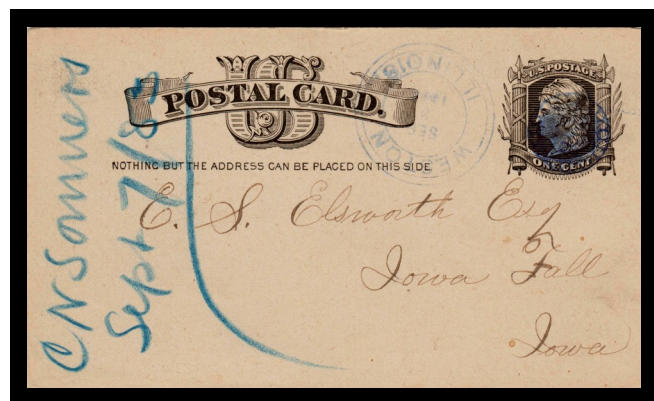 US
POSTAL CARD.
NOTHING BUT THE ADDRESS CAN BE PLACED ON THIS SIDE
U.S. POSTAGE
ONE CENT
WELDON
ILLINOIS
SEP
E. S. Elsworth Esq
Iowa Fall
Iowa
C N Sommers
Sept 7/83